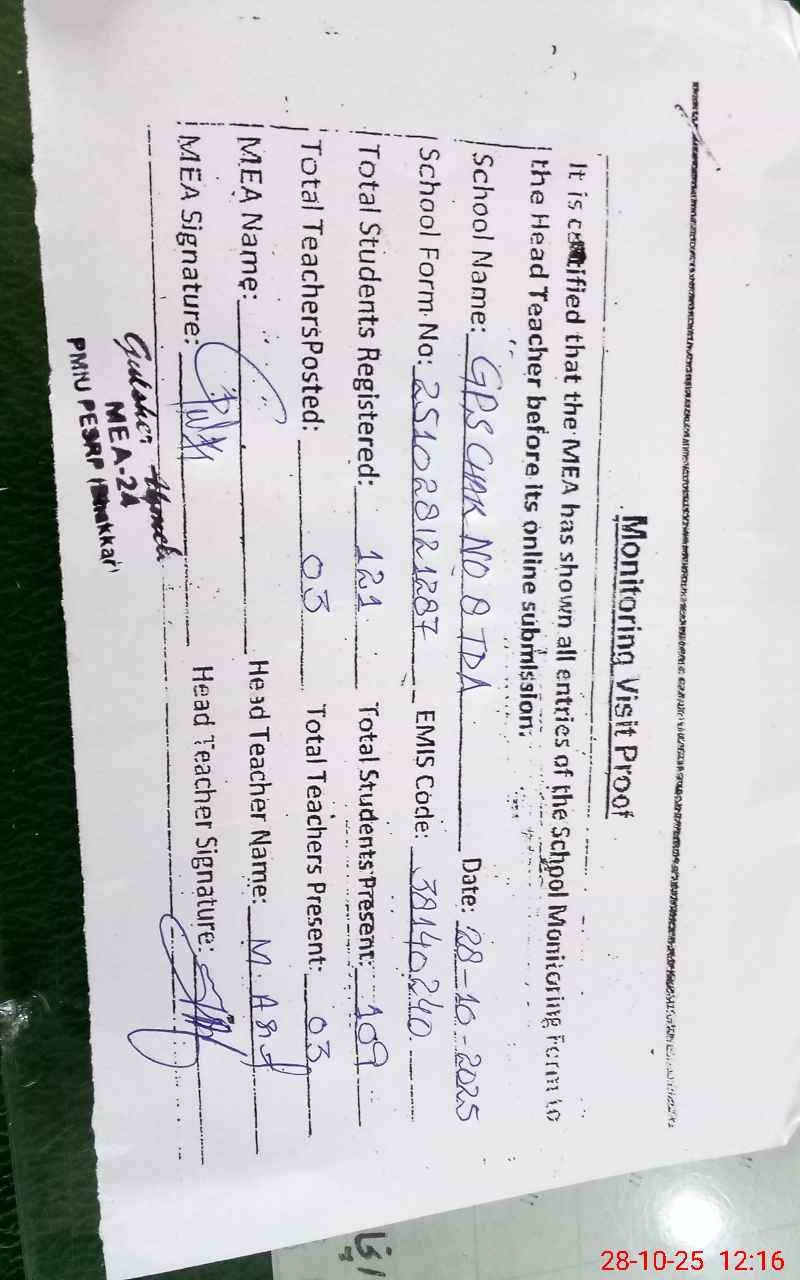 Monitoring Visit Proof
It is certified that the MEA has shown all entries of the School Monitoring Form to
the Head Teacher before its online submission.
School Name: GPS CHAK NO. 8 TDA Date: 28-10-2025
School Form No: 251028121287 EMIS Code: 38140240
Total Students Registered: 121 Total Students Present: 109
Total Teachers Posted: 03 Total Teachers Present: 03
MEA Name: Head Teacher Name: M.
MEA Signature: Head Teacher Signature:
Gulsher
MEA-24
PMIU PESRP (Bhakkar)
28-10-25 12:16